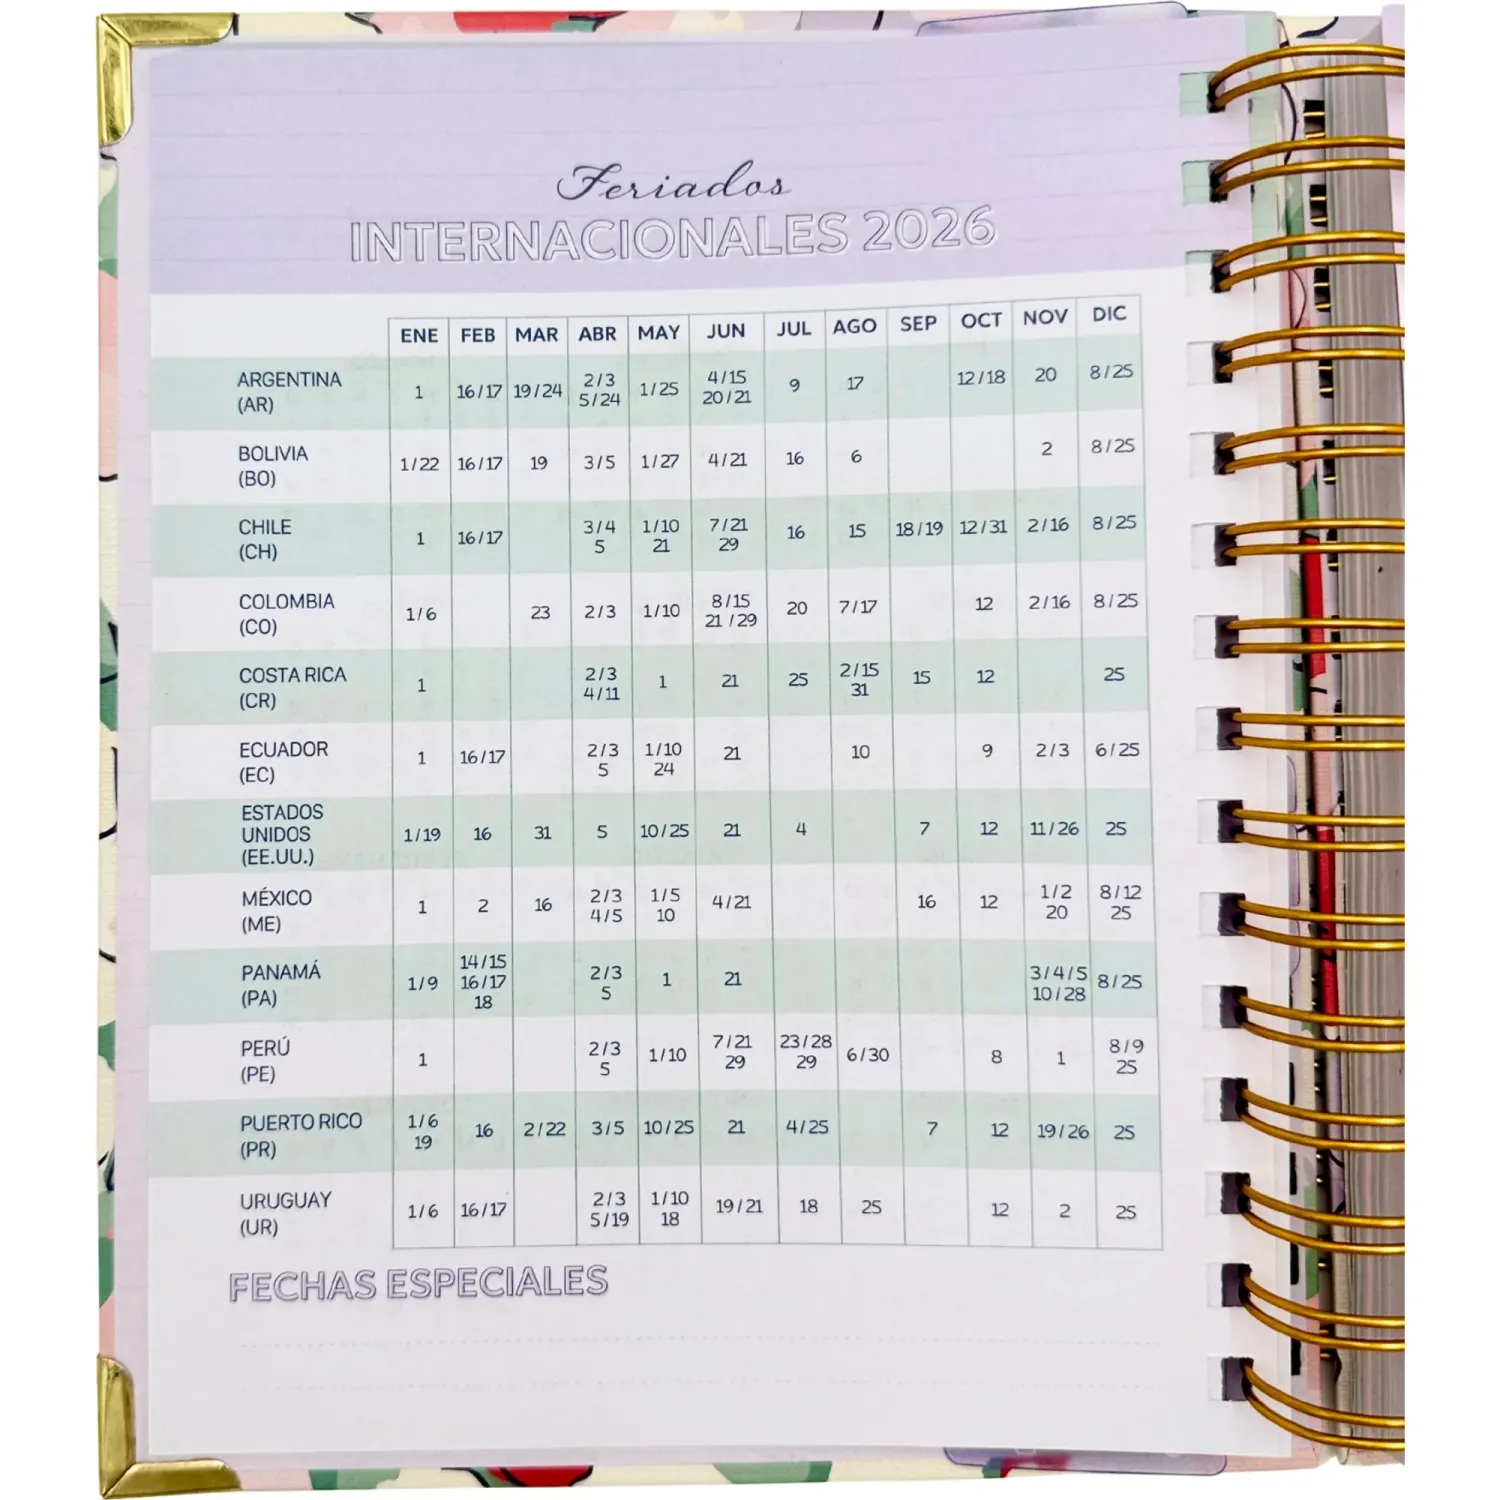 Feriados
INTERNACIONALES 2026
ENE FEB MAR ABR MAY JUN JUL AGO SEP OCT NOV DIC
ARGENTINA
(AR)
1 16/17 19/24 2/3 5/24 1/25 4/15 20/21 9 17 12/18 20 8/25
BOLIVIA
(BO)
1/22 16/17 19 3/5 1/27 4/21 16 6 2 8/25
CHILE
(CH)
1 16/17 3/4 5 1/10 21 7/21 29 16 15 18/19 12/31 2/16 8/25
COLOMBIA
(CO)
1/6 23 2/3 1/10 8/15 21/29 20 7/17 12 2/16 8/25
COSTA RICA
(CR)
1 2/3 4/11 1 21 25 2/15 31 15 12 25
ECUADOR
(EC)
1 16/17 2/3 5 1/10 24 21 10 9 2/3 6/25
ESTADOS
UNIDOS
(EE.UU.)
1/19 16 31 5 10/25 21 4 7 12 11/26 25
MÉXICO
(ME)
1 2 16 2/3 4/5 1/5 10 4/21 16 12 1/2 20 8/12 25
PANAMÁ
(PA)
1/9 14/15 16/17 18 2/3 5 1 21 3/4/5 10/28 8/25
PERÚ
(PE)
1 2/3 5 1/10 7/21 29 23/28 29 6/30 8 1 8/9 25
PUERTO RICO
(PR)
1/6 19 16 2/22 3/5 10/25 21 4/25 7 12 19/26 25
URUGUAY
(UR)
1/6 16/17 2/3 5/19 1/10 18 19/21 18 25 12 2 25
FECHAS ESPECIALES